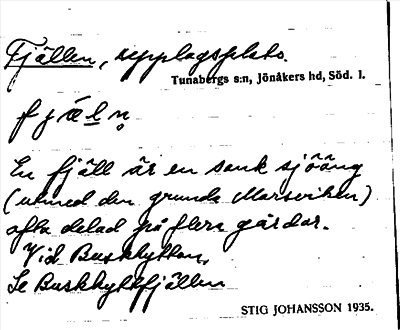 Fjällen, upplagsplats.
Tunabergs s:n, Jönåkers hd, Söd. l.
fjǣln̥
En fjäll är en sank sjöäng
(utmed den grunda Marsviken)
ofta delad på flera gårdar.
Vid Buskhyttan,
Se Buskhyttfjällen
STIG JOHANSSON 1935.